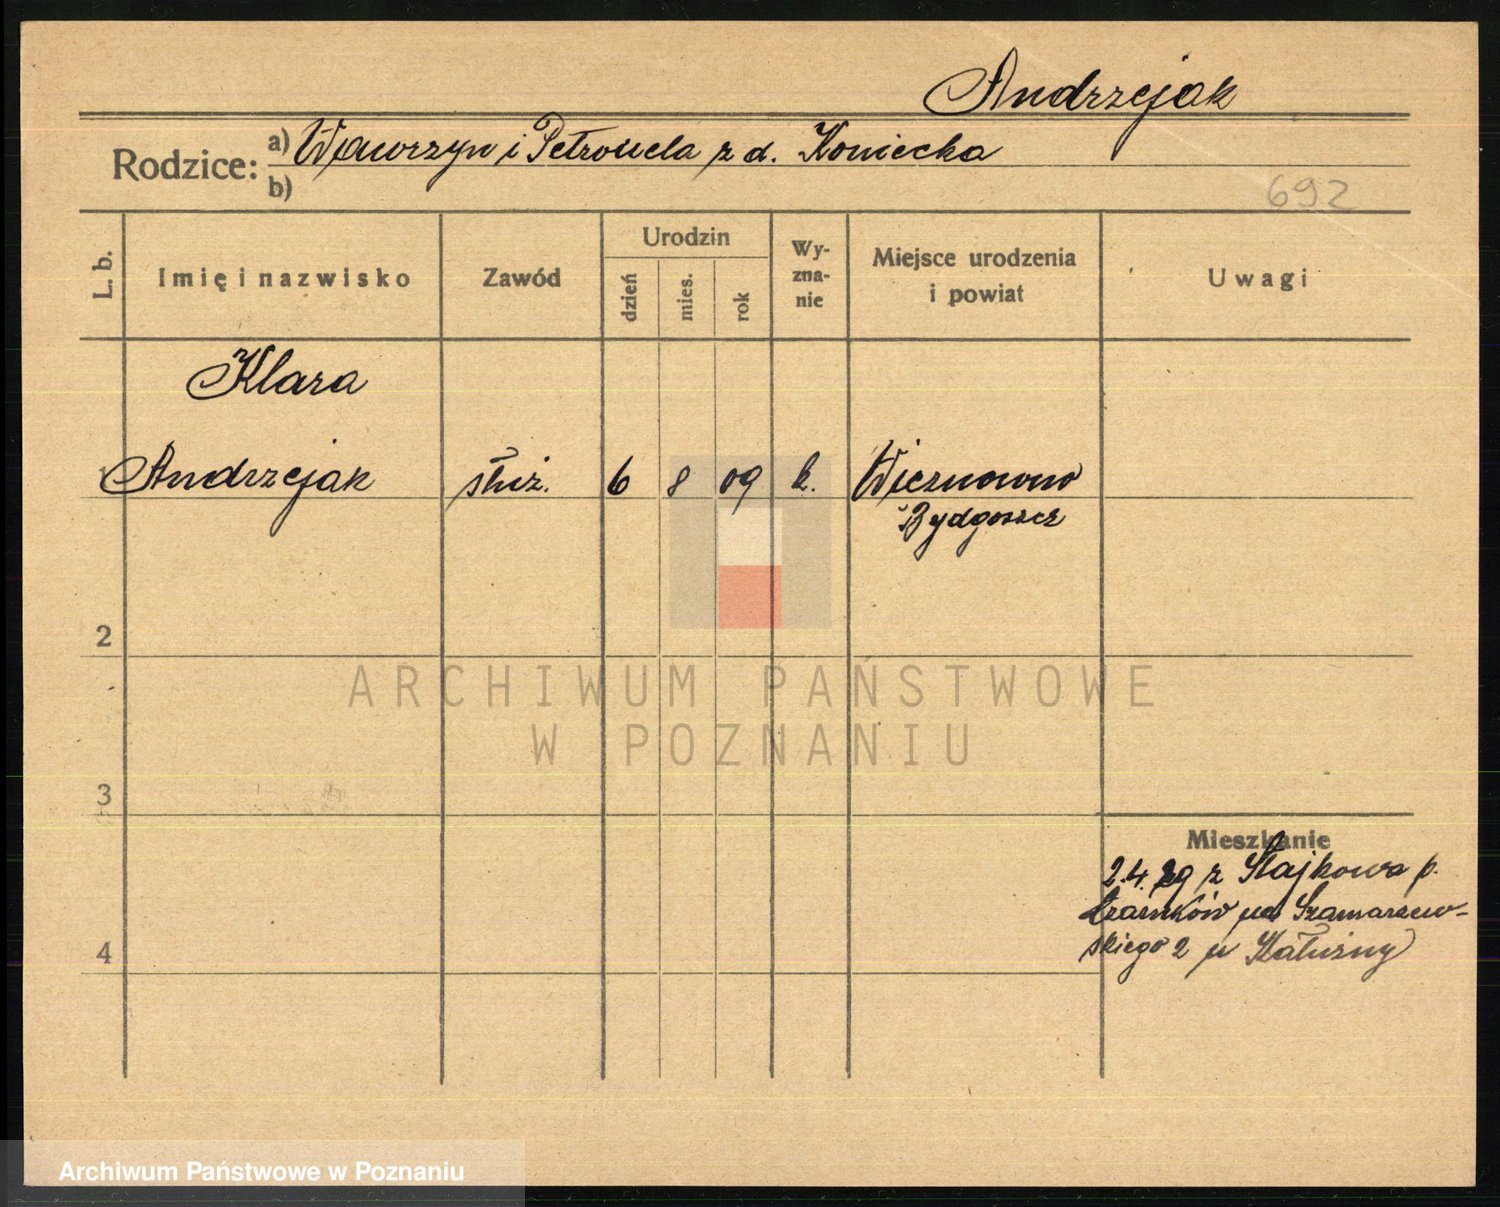 Andrzejak
Rodzice: a) Wawrzyn i Petronela z d. Koniecka
b)
692
L. b.
Imię i nazwisko
Zawód
Urodzin
dzień
mies.
rok
Wy-
zna-
nie
Miejsce urodzenia
i powiat
Uwagi
Klara
1 Andrzejak służ. 6 8 09 k. Wieznowno
Bydgoszcz
2
ARCHIWUM PAŃSTWOWE
W POZNANIU
3
Mieszkanie
2.4.29 z Stajkowa p.
Czarnków na Szamarzew-
skiego 2 u Kałużny
4
Archiwum Państwowe w Poznaniu